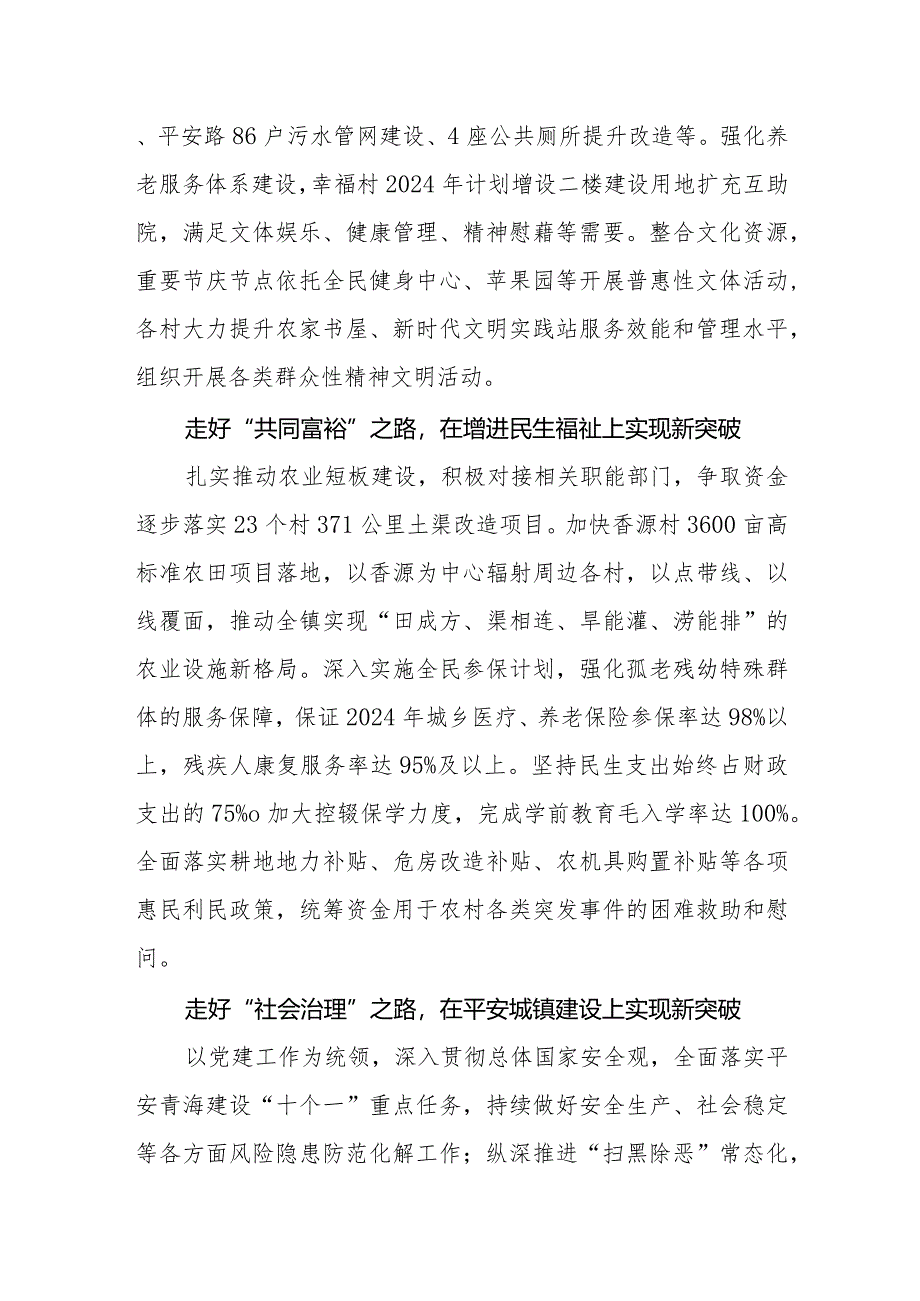 、平安路 86 户污水管网建设、4 座公共厕所提升改造等。强化养
老服务体系建设，幸福村 2024 年计划增设二楼建设用地扩充互助
院，满足文体娱乐、健康管理、精神慰藉等需要。整合文化资源，
重要节庆节点依托全民健身中心、苹果园等开展普惠性文体活动，
各村大力提升农家书屋、新时代文明实践站服务效能和管理水平，
组织开展各类群众性精神文明活动。
走好“共同富裕”之路，在增进民生福祉上实现新突破
扎实推动农业短板建设，积极对接相关职能部门，争取资金
逐步落实 23 个村 371 公里土渠改造项目。加快香源村 3600 亩高
标准农田项目落地，以香源为中心辐射周边各村，以点带线、以
线覆面，推动全镇实现“田成方、渠相连、旱能灌、涝能排”的
农业设施新格局。深入实施全民参保计划，强化孤老残幼特殊群
体的服务保障，保证 2024 年城乡医疗、养老保险参保率达 98%以
上，残疾人康复服务率达 95%及以上。坚持民生支出始终占财政
支出的 75%o 加大控辍保学力度，完成学前教育毛入学率达 100%。
全面落实耕地地力补贴、危房改造补贴、农机具购置补贴等各项
惠民利民政策，统筹资金用于农村各类突发事件的困难救助和慰
问。
走好“社会治理”之路，在平安城镇建设上实现新突破
以党建工作为统领，深入贯彻总体国家安全观，全面落实平
安青海建设“十个一”重点任务，持续做好安全生产、社会稳定
等各方面风险隐患防范化解工作；纵深推进“扫黑除恶”常态化，